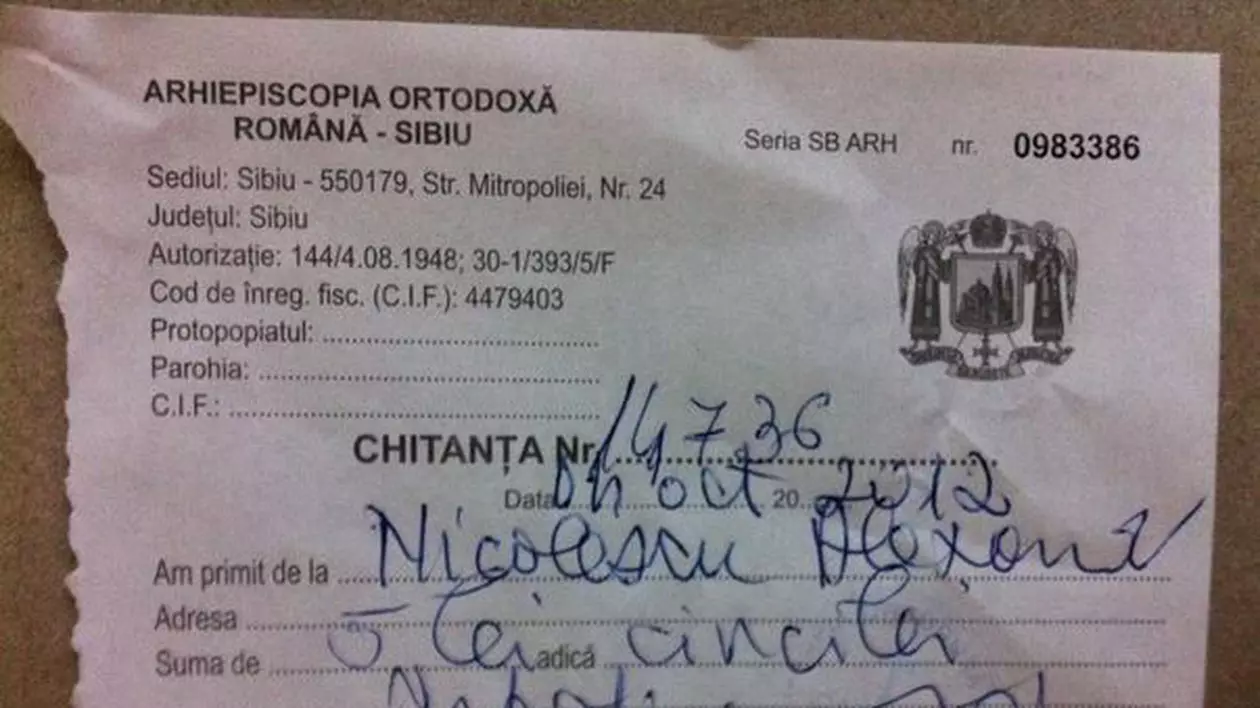 ARHIEPISCOPIA ORTODOXĂ
ROMÂNĂ - SIBIU
Seria SB ARH nr. 0983386
Sediul: Sibiu - 550179, Str. Mitropoliei, Nr. 24
Județul: Sibiu
Autorizație: 144/4.08.1948; 30-1/393/5/F
Cod de înreg. fisc. (C.I.F.): 4479403
Protopopiatul:
Parohia:
C.I.F.:
CHITANȚA Nr. 14736
Data oct 20 2012
Am primit de la Nicolescu
Adresa
Suma de 5 lei adică cinci lei